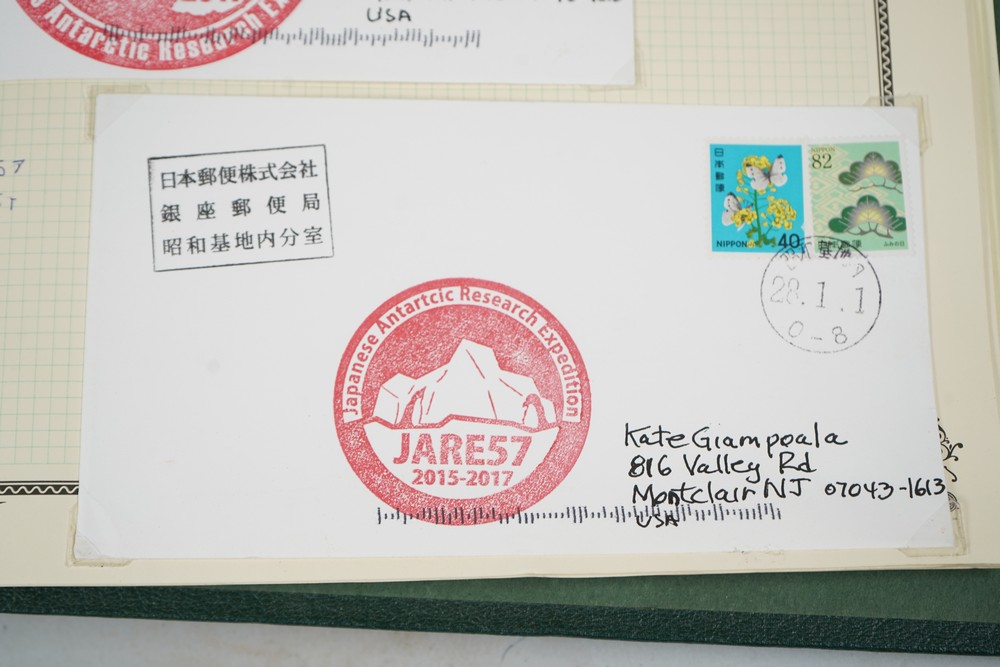 USA
Antarctic Research
日本郵便株式会社
銀座郵便局
昭和基地内分室
日本郵便
NIPPON 40
NIPPON
82
日本郵便
ふみの日
28.1.1
0-8
Japanese Antartcic Research Expedition
JARE57
2015-2017
Kate Giampoala
816 Valley Rd
Montclair NJ 07043-1613
USA